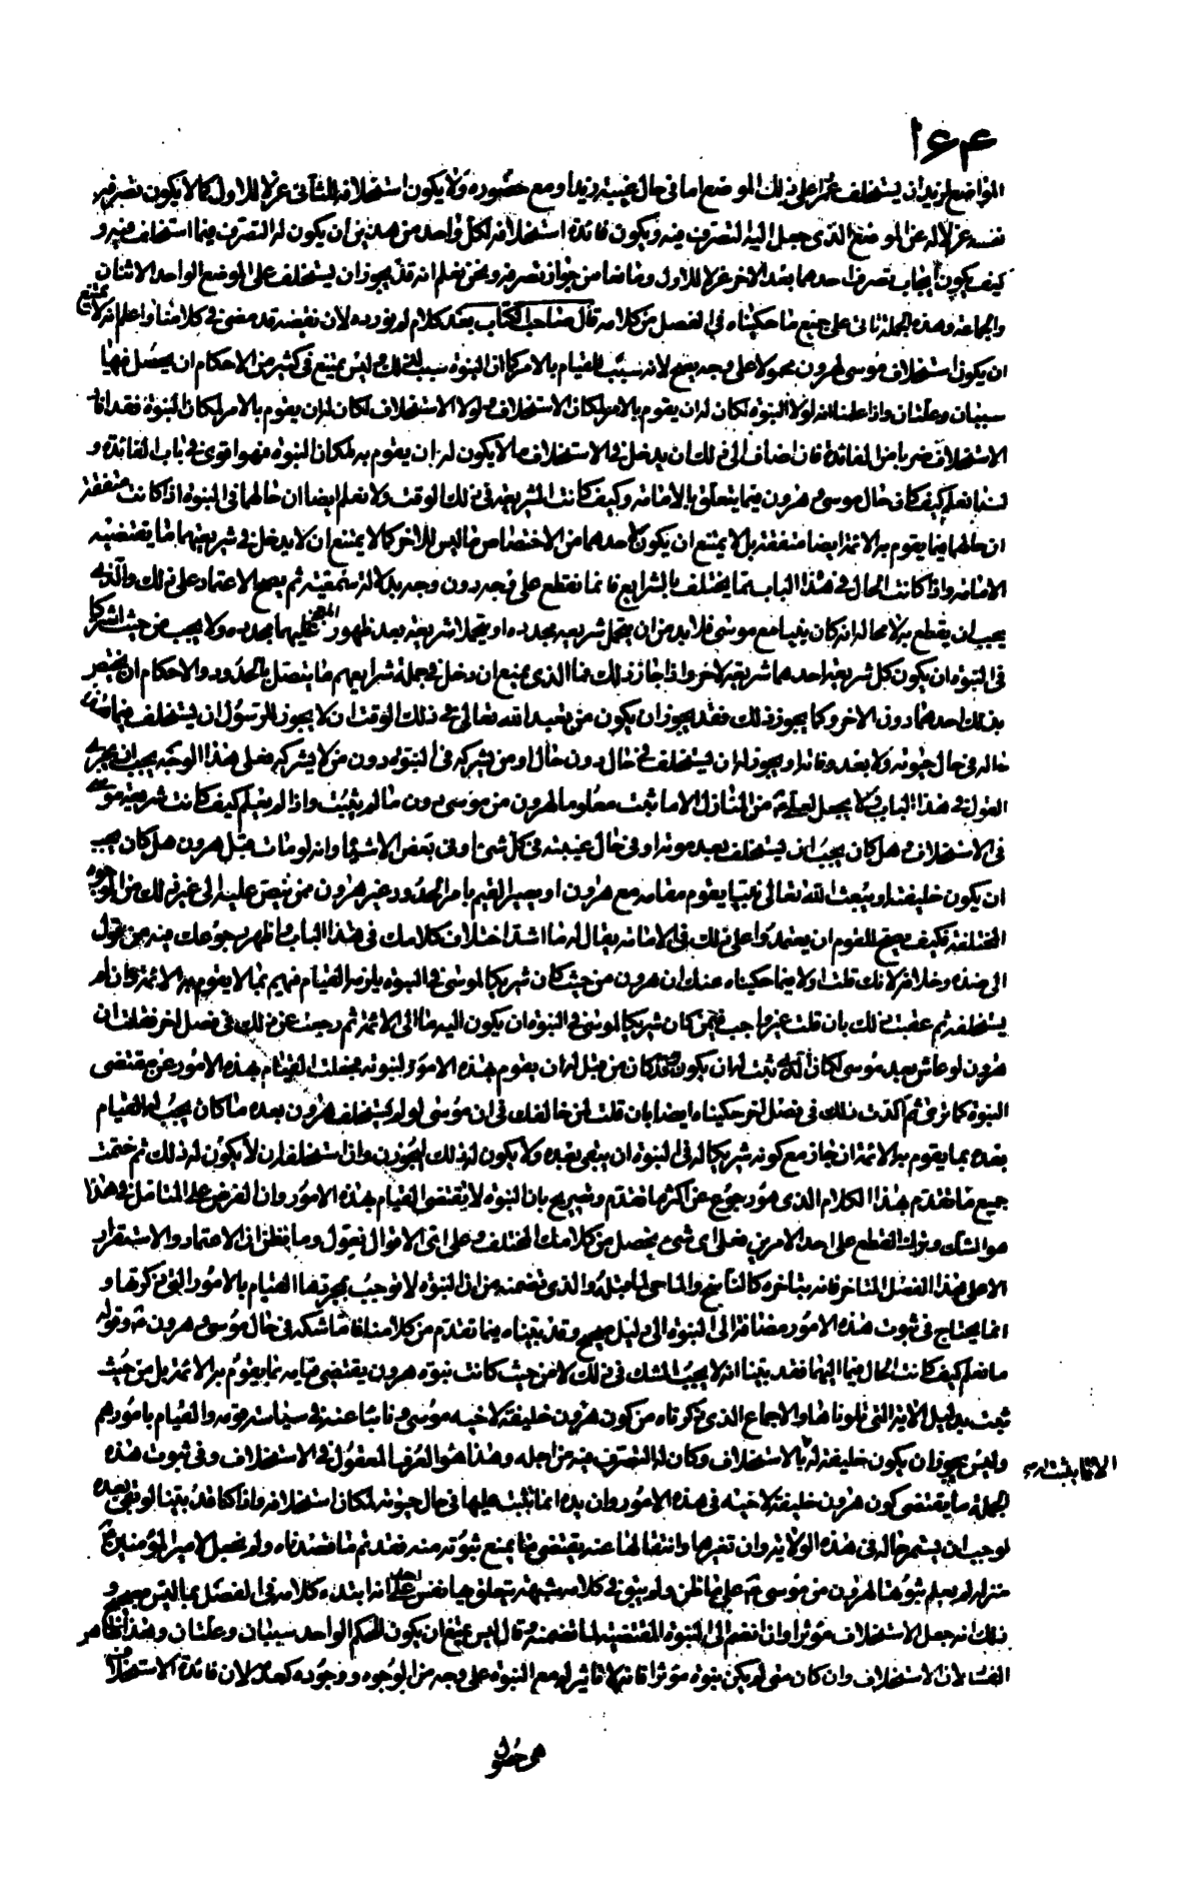 ١٦٤
المواضع لزيد ان يستخلف عمرا على ذلك الموضع اما في حال غيبة زيد او مع حضوره ولا يكون استخلافه للثاني عزلا للاول كما لا يكون تصرفه
نفسه عزلا له عن الموضع الذي جعل اليه التصرف فيه ويكون فائدة استخلافه لكل واحد من هذين ان يكون له التصرف فيما استخلف فيه و
كيف يكون ايجاب تصرف احدهما بعد الاخر عزلا للاول وما ضامن جواز تصرفه ونحن نعلم انه قد يجوز ان يستخلف على الموضع الواحد الاثنان
والجماعة وهذه الجملة تاتي على جميع ما حكيناه في الفصل من كلامه قال صاحب الكتاب بعد كلام لم نورده لان نقيضه قد مضى في كلامنا واعلم انه لا يمتنع
ان يكون استخلاف موسى لهرون محمولا على وجه يصح لانه سبب للقيام بالامر كما ان النبوة سبب لذلك وليس يمتنع في كثير من الاحكام ان يحصل فيها
سببان وعلتان واذا علمنا انه لولا النبوة لكان له ان يقوم بالامر لمكان الاستخلاف ولولا الاستخلاف لكان له ان يقوم بالامر لمكان النبوة فقد افاد
الاستخلاف ضربا من الفائدة فان اضاف الى ذلك ان يدخل في الاستخلاف ما لا يكون له ان يقوم به لمكان النبوة فهو اقوى في باب الفائدة و
لسنا نعلم كيف كان حال موسى وهرون فيما يتعلق بالامامة وكيف كانت الشريعة في ذلك الوقت ولا نعلم ايضا ان حالهما في النبوة اذا كانت متفقة
ان حالهما فيما يقوم به الائمة ايضا متفقة بل لا يمتنع ان يكون لاحدهما من الاختصاص ما ليس للاخر كما لا يمتنع ان لا يدخل في شريعتهما ما يقتضيه
الامامة واذا كانت الحال في هذا الباب مما يختلف بالشرايع فانما نقطع على وجه دون وجه بدلالة سمعية ثم يصح الاعتماد على ذلك والذي
يجب ان يقطع به لا محالة انه كان نبيا مع موسى فلا بد من ان يتحمل شريعة مجددة او يتحملا شريعة بعد ظهور المعجز عليهما مجددة ولا يجب من حيث اشتركا
في النبوة ان يكون كل شريعة احدهما شريعة الاخر واذا جاز ذلك فما الذي يمنع ان دخل في جملة شرايعهم ما يتصل بالحدود والاحكام ان يختص
بذلك احدهما دون الاخر وكما يجوز ذلك فقد يجوز ان يكون من تعبد الله تعالى في ذلك الوقت ان لا يجوز للرسول ان يستخلف
في حال حيوته ولا بعد وفاته او يجوز له ان يستخلف في حال دون حال او من يشركه في النبوة دون من لا يشركه فعلى هذا الوجه يجب ان يجري
القول في هذا الباب ولا يجعل لعلي ع من المنازل الا ما ثبت معلوما لهرون من موسى دون ما لم يثبت واذا لم يعلم كيف كانت شريعة موسى
في الاستخلاف وهل كان يجب ان يستخلف بعد موته او في حال غيبته في كل شئ او في بعض الاشياء وانه لو مات قبل هرون هل كان يجب
ان يكون خليفته او يبعث الله تعالى نبيا يقوم مقامه مع هرون او يصير القيم بامر الحدود غير هرون ممن ينص عليه الى غير ذلك من الوجوه
المختلفة فكيف يصح للقوم ان يعتمدوا على ذلك في الامامة يقال له ما اشد اختلاف كلامك في هذا الباب واظهر رجوعك فيه من قول
الى ضده وخلافه لانك قلت اولا فيما حكيناه عنك ان هرون من حيث كان شريكا لموسى في النبوة يلزمه القيام فيهم بما لا يقوم به الائمة وان لم
يستخلفه ثم عقبت ذلك بان قلت غير واجب فيمن كان شريكا لموسى في النبوة ان يكون اليه ما الى الائمة ثم رجعت عن ذلك في فصل اخر فقلت ان
هرون لو عاش بعد موسى لكان الذي ثبت له ان يكون كما كان من قبل له ان يقوم بهذه الامور لنبوته فجعلت القيام بهذه الامور من مقتضى
النبوة كما ترى ثم اكدت ذلك في فصل اخر حكيناه ايضا بان قلت لمن خالفك في ان موسى لو لم يستخلف هرون بعده ما كان يجب له القيام
بعده بما يقوم به الائمة ان جاز مع كونه شريكا له في النبوة ان يبقى بعده ولا يكون له ذلك ليجوزن وان استخلفه ان لا يكون له ذلك ثم ختمت
جميع ما تقدم بهذا الكلام الذي هو رجوع عن اكثر ما تقدم وتصريح بان النبوة لا يقتضي القيام بهذه الامور وان الفرض على المتامل في هذا
هو الشك وترك القطع على احد الامرين فعلى اي شئ يحصل من كلامك المختلف وعلى اي الاقوال نعول وما نظن ان الاعتماد والاستقرار
الا على هذا الفصل المتاخر فانه بتاخره كالناسخ والماحي لما قبله والذي تضمنه من ان النبوة لا توجب بمجردها القيام بالامور التي ذكرتها و
انما يحتاج في ثبوت هذه الامور مضافة الى النبوة الى دليل صحيح وقد بيناه فيما تقدم من كلامنا فاما شكه في حال موسى وهرون ع وقوله
ما نعلم كيف كانت الحال فيما اليهما فقد بينا انه لا يجب الشك في ذلك لا من حيث كانت نبوة هرون يقتضي قيامه بما يقوم به الائمة بل من حيث
ثبت بدليل الاية التي تلوناها والاجماع الذي ذكرناه من كون هرون خليفة لاخيه موسى ونائبا عنه في سياسة قومه والقيام بامورهم
وليس يجوز ان يكون خليفة له بالاستخلاف وكان له التصرف فيه من اجله وهذا هو العرف المعقول في الاستخلاف وفي ثبوت هذه
الجملة ما يقتضي كون هرون خليفة لاخيه في هذه الامور وان يده انما ثبتت عليها في حال حيوته لمكان استخلافه واذا كنا قد بينا لو بقي بعده
لوجب ان يستمر حاله في هذه الولاية وان تغيرها وانتقالها عنه يقتضي ما يمنع ثبوته منه فقد تم ما قصدناه ولم نجعل لامير المؤمنين ع
منزلة لم يعلم ثبوتها لهرون من موسى ع على ما ظن ولم يبق في كلامه شبهة يتعلق بها نفس على انه ابتدء كلامه في الفصل بما ليس بصحيح و
ذلك انه جعل الاستخلاف مؤثرا وان انضم الى النبوة المقتضية لما تضمنه وقال ليس يمتنع ان يكون للحكم الواحد سببان وعلتان وهذا ظاهر
الفساد لان الاستخلاف وان كان متى لم يكن نبوة مؤثرا فانه لا تاثير له مع النبوة على وجه من الوجوه ووجوده كعدمه لان فائدة الاستخلاف
هي حصول